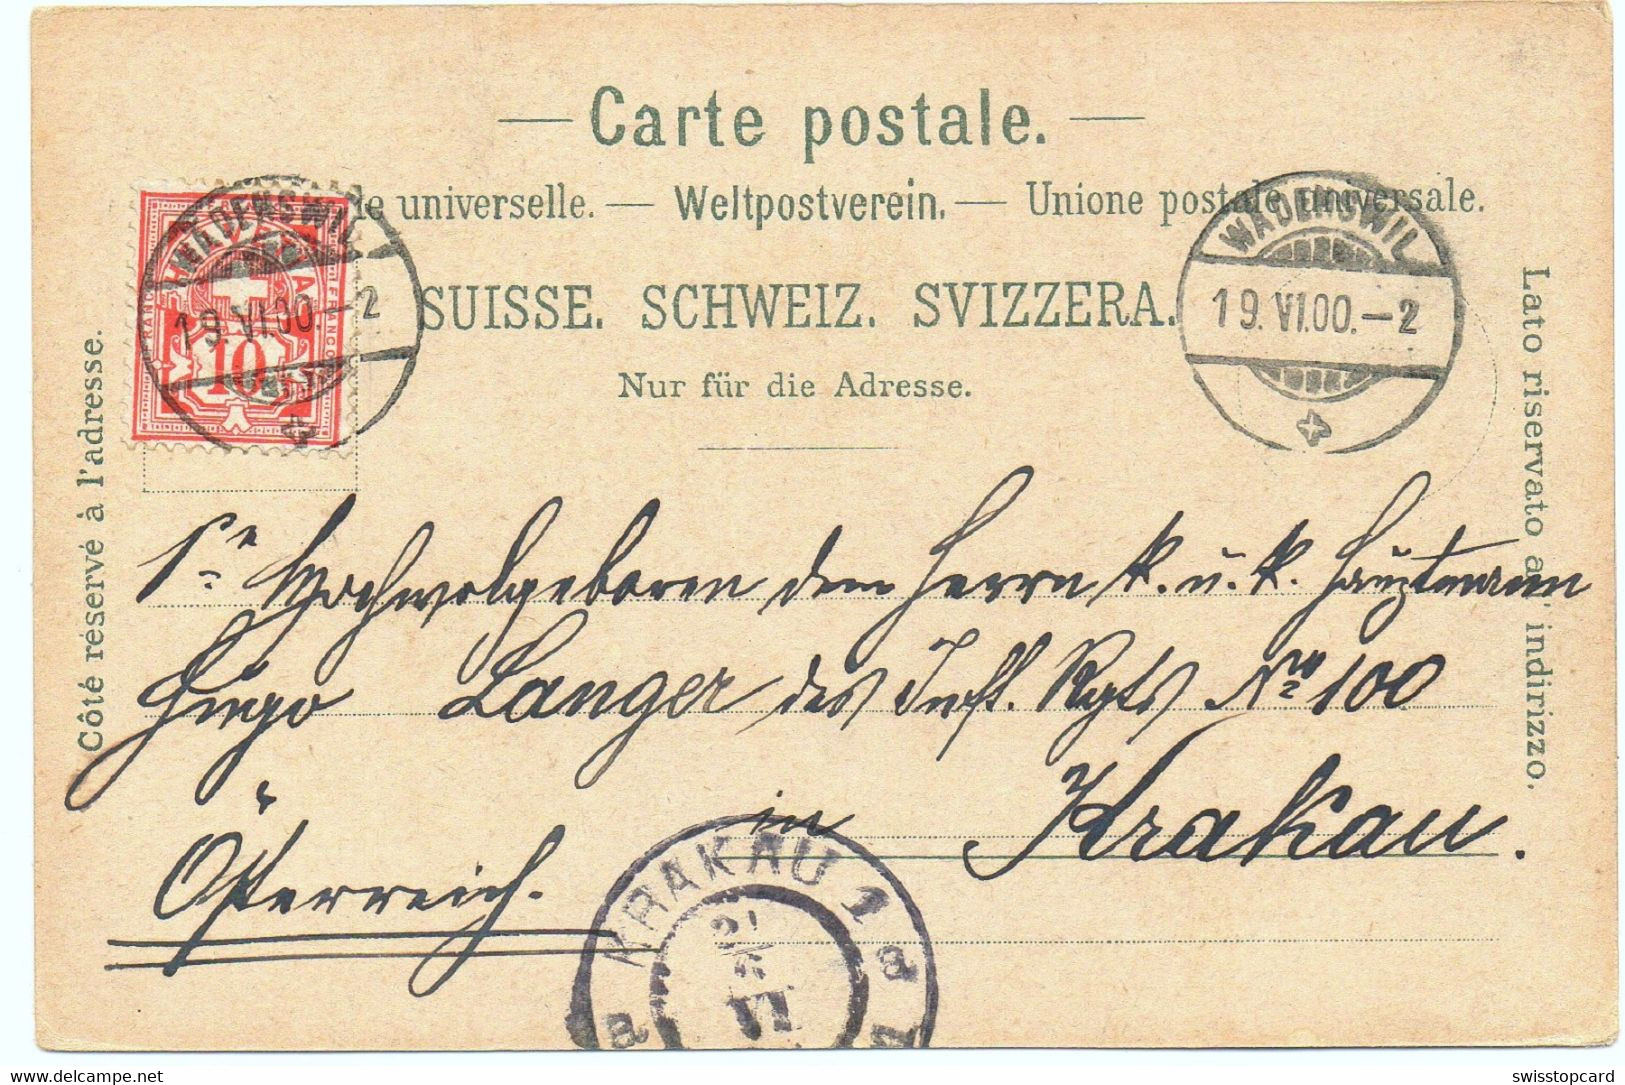 Carte postale.
le universelle. — Weltpostverein. — Unione postale universale.
SUISSE. SCHWEIZ. SVIZZERA.
Nur für die Adresse.
Côté réservé à l'adresse.
Lato riservato a indirizzo.
WADENSWIL
19.VI.00.–2
FRANCO
10
WADENSWIL
19.VI.00.–2
Sr Hochwolgeboren dem Herrn k. u. k. Hauptmann
Hugo Langer des Inft. Rgts Nro 100
in Krakau.
Österreich.
KRAKAU 1
VI
a
www.delcampe.net
swisstopcard